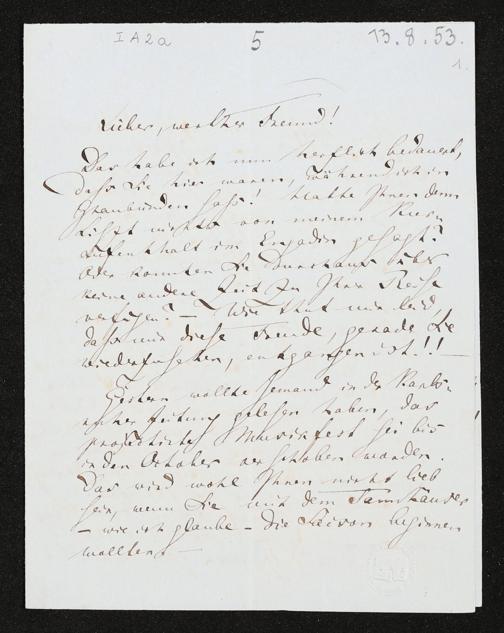 I A 2 a 5 13.8.53.
1.
Lieber, werther Freund!
Das habe ich nun herzlich bedauert,
dass Sie hier waren, während ich in
Graubünden sass! Hatte Ihnen denn
Liszt nichts von meinem Kur-
aufenthalt im Engadin gesagt?
Oder konnten Sie durchaus über
keine andere Zeit zu Ihrer Reise
verfügen? – Wie thut mir leid,
dass mir diese Freude, gerade Sie
wiederzusehen, entgangen ist!! –
Gestern wollte Jemand in der Karls-
ruher Zeitung gelesen haben, das
projectirte Musikfest sei bis
in den October verschoben worden.
Das wird wohl Ihnen nicht lieb
sein, wenn Sie mit dem Tannhäuser
– wie ich glaube – die Saison beginnen
wollten. –